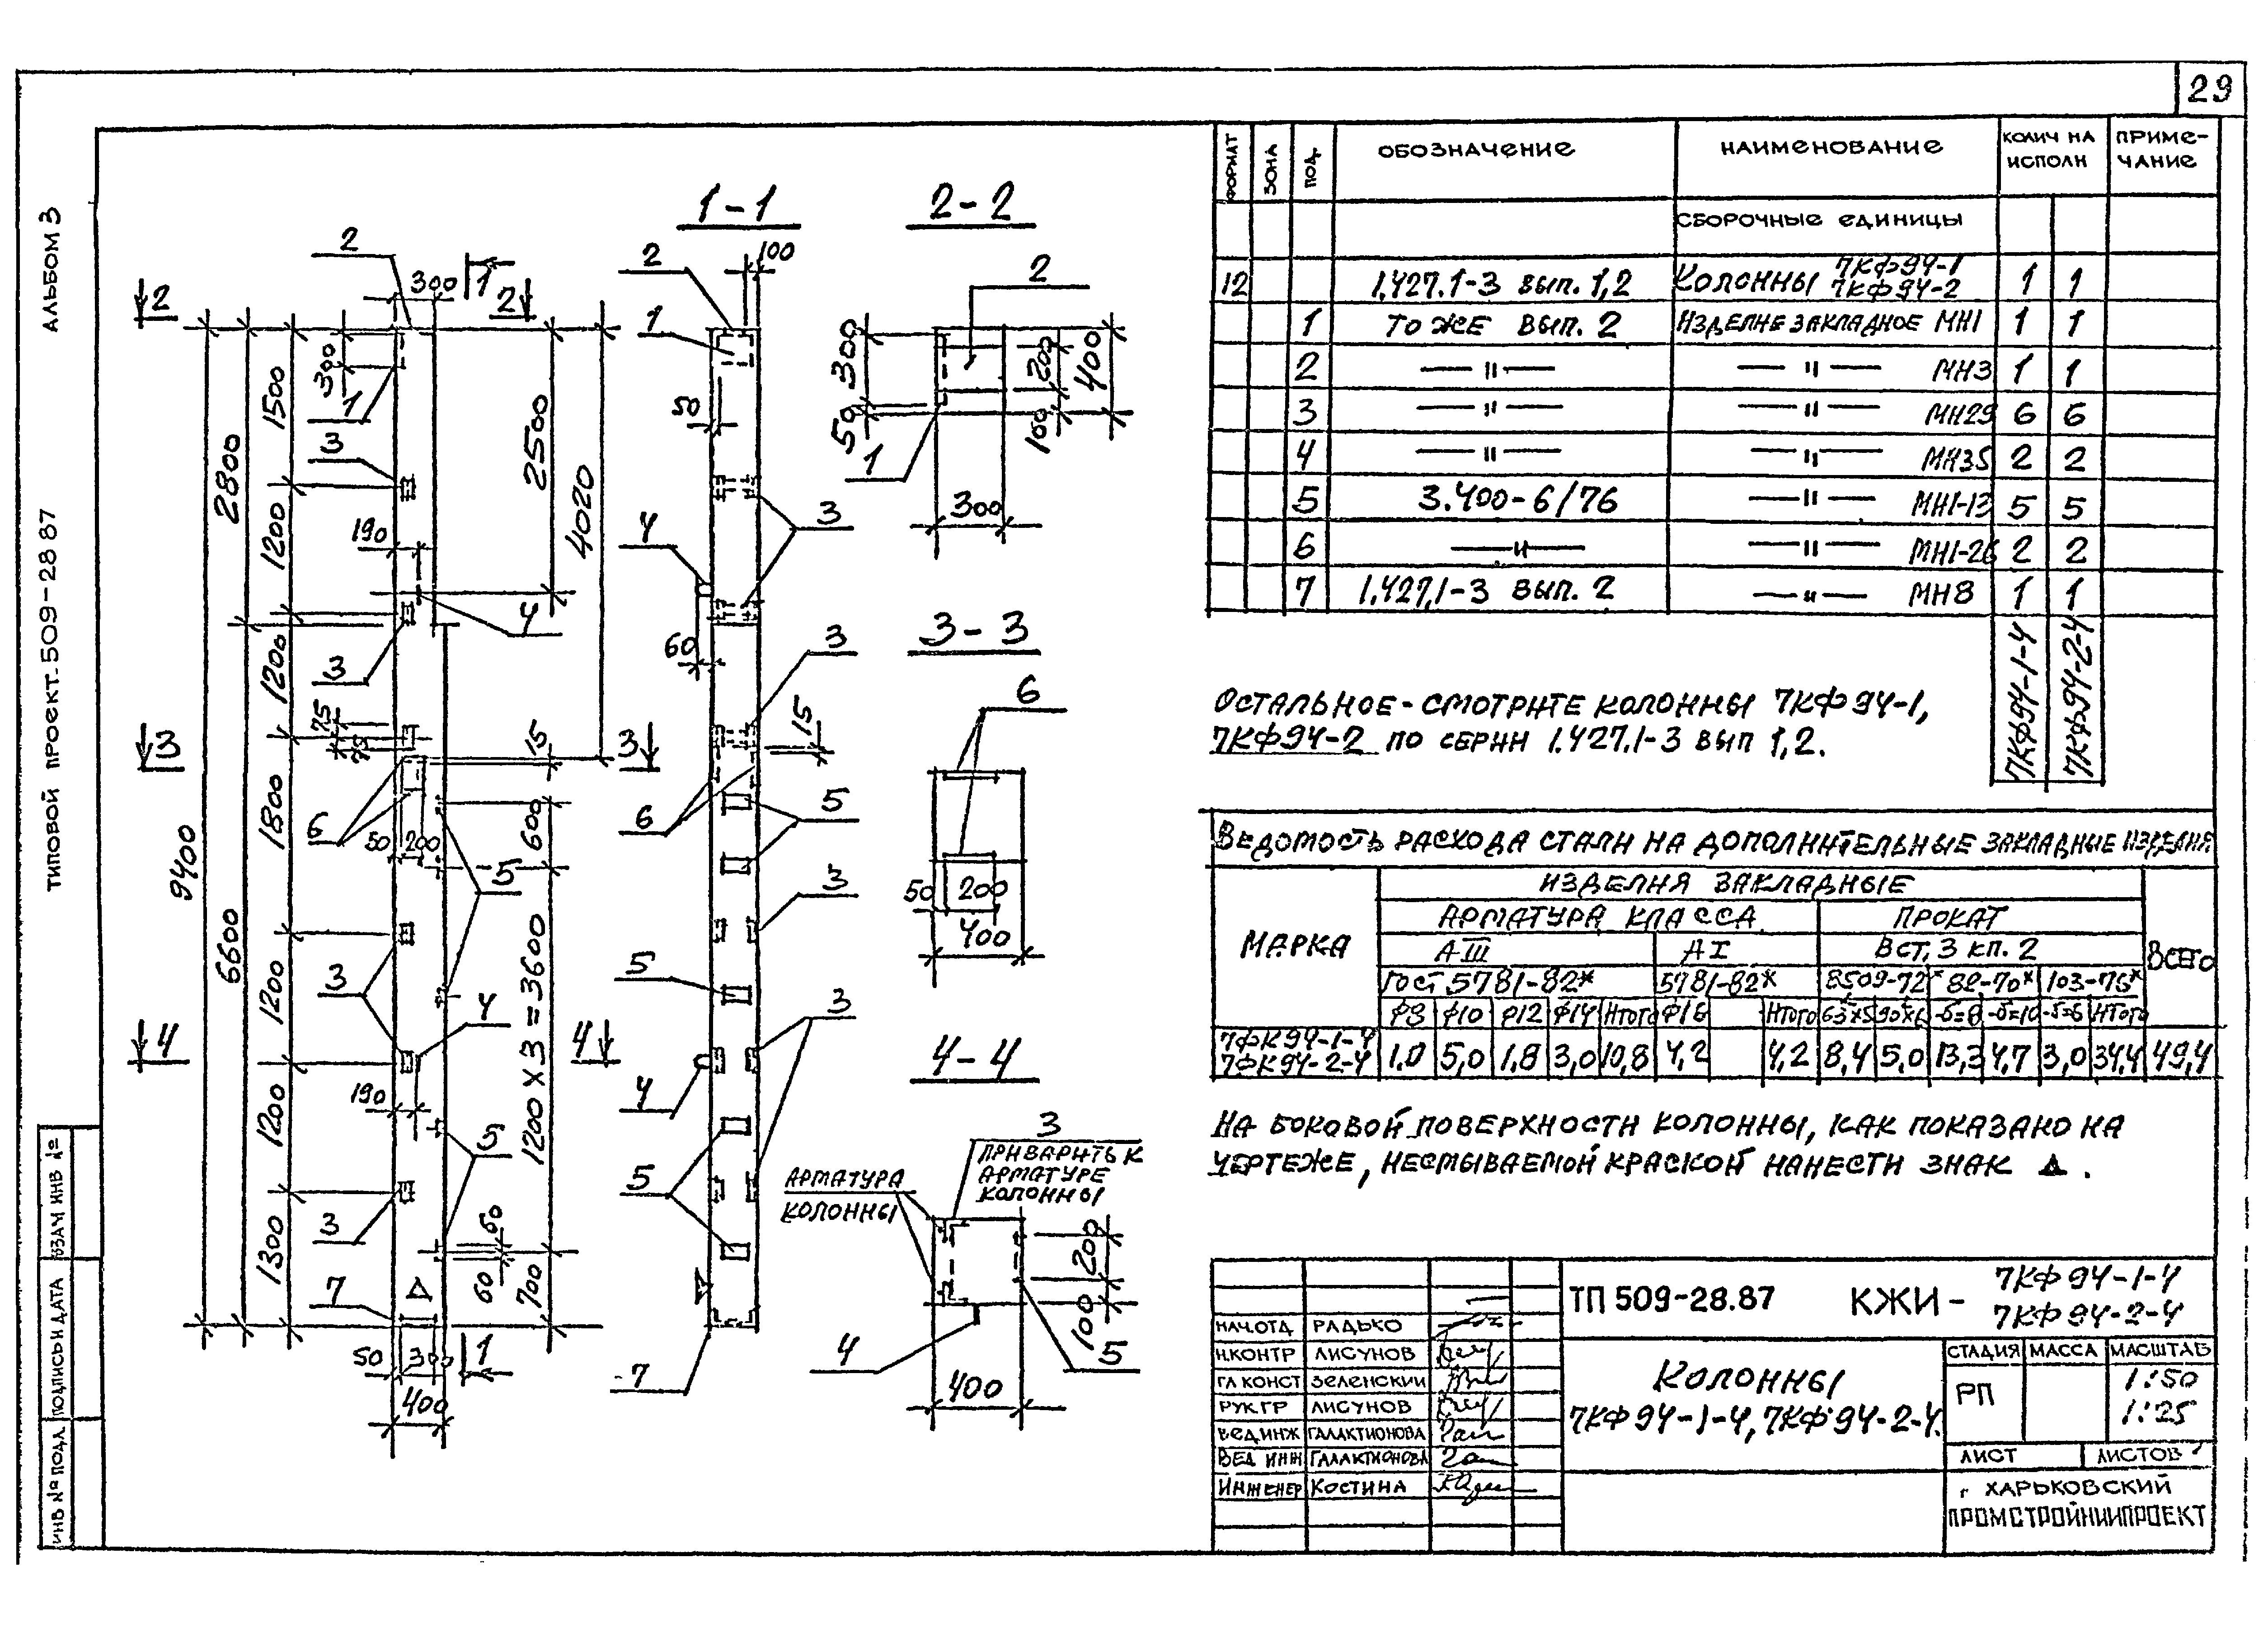 29
АЛЬБОМ 3
ТИПОВОЙ ПРОЕКТ. 509-28 87
ИНВ № ПОДЛ ПОДПИСЬ И ДАТА ВЗАМ ИНВ №
2
300
1
2 2
300
1
1500
3
2800
2500
4020
1200
190
4
3
1200
75
75
3 3
15
1800
6
50 200
600
5
9400
6600
3
1200
4
4 4
190
1200
5
1200 х 3 = 3600
3
60
60
1300
700
7
Δ
50 300
1
400
1-1
2
100
1
50
3
4
60
3
15
6
5
3
5
3
4
5
7
2-2
2
300
50
200
400
100
1
300
3-3
6
50 200
400
4-4
3
ПРИВАРИТЬ К
АРМАТУРЕ
КОЛОННЫ
АРМАТУРА
КОЛОННЫ
200
100
4
5
400
ФОРМАТ ЗОНА ПОД. ОБОЗНАЧЕНИЕ НАИМЕНОВАНИЕ КОЛИЧ НА ИСПОЛН ПРИМЕ-ЧАНИЕ
СБОРОЧНЫЕ ЕДИНИЦЫ
12 1.427.1-3 ВЫП. 1,2 КОЛОННЫ 7КФ94-1 7КФ94-2 1 1
1 ТО ЖЕ ВЫП. 2 ИЗДЕЛИЕ ЗАКЛАДНОЕ МН1 1 1
2 —"— —"— МН3 1 1
3 —"— —"— МН29 6 6
4 —"— —"— МН35 2 2
5 3.400-6/76 —"— МН1-13 5 5
6 —"— —"— МН1-26 2 2
7 1.427.1-3 ВЫП. 2 —"— МН8 1 1
7КФ94-1-4
7КФ94-2-4
ОСТАЛЬНОЕ-СМОТРИТЕ КОЛОННЫ 7КФ94-1,
7КФ94-2 ПО СЕРИИ 1.427.1-3 ВЫП 1,2.
ВЕДОМОСТЬ РАСХОДА СТАЛИ НА ДОПОЛНИТЕЛЬНЫЕ ЗАКЛАДНЫЕ ИЗДЕЛИЯ
МАРКА ИЗДЕЛИЯ ЗАКЛАДНЫЕ ВСЕГО
АРМАТУРА КЛАССА ПРОКАТ
АIII АI ВСТ.3 КП.2
ГОСТ 5781-82* 5781-82* 8509-72* 82-70* 103-76*
Ф8 Ф10 Ф12 Ф14 ИТОГО Ф16 ИТОГО 63х5 90х6 -δ=8 -δ=10 -δ=6 ИТОГО
7ФК94-1-4
7ФК94-2-4 1,0 5,0 1,8 3,0 10,8 4,2 4,2 8,4 5,0 13,3 4,7 3,0 34,4 49,4
НА БОКОВОЙ ПОВЕРХНОСТИ КОЛОННЫ, КАК ПОКАЗАНО НА
ЧЕРТЕЖЕ, НЕСМЫВАЕМОЙ КРАСКОЙ НАНЕСТИ ЗНАК Δ.
НАЧ.ОТД РАДЬКО
Н.КОНТР ЛИСУНОВ
ГЛ КОНСТ ЗЕЛЕНСКИЙ
РУК.ГР ЛИСУНОВ
ВЕД.ИНЖ ГАЛАКТИОНОВА
ВЕД ИНЖ ГАЛАКТИОНОВА
ИНЖЕНЕР КОСТИНА
ТП 509-28.87 КЖИ- 7КФ94-1-4
7КФ94-2-4
КОЛОННЫ
7КФ94-1-4, 7КФ94-2-4.
СТАДИЯ МАССА МАСШТАБ
РП 1:50
1:25
ЛИСТ ЛИСТОВ 1
г ХАРЬКОВСКИЙ
ПРОМСТРОЙНИИПРОЕКТ